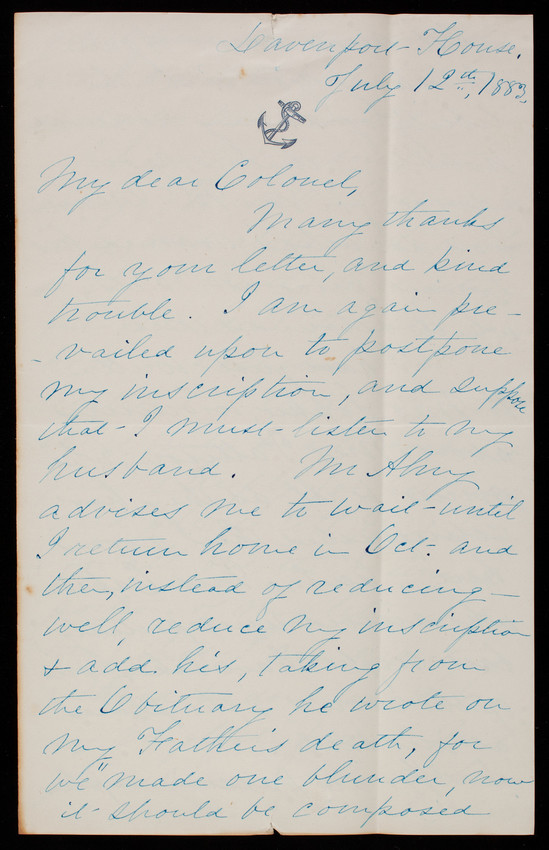 Davenport House.
July 12th, 1883.
My dear Colonel,
Many thanks
for your letter, and kind
trouble. I am again pre-
-vailed upon to postpone
my inscription, and suppose
that I must listen to my
husband. Mr Almy
advises me to wait until
I return home in Oct. and
then, instead of reducing -
well, reduce my inscription
& add his, taking from
the Obituary he wrote on
my Father's death, for
"we" made one blunder, now
it should be composed